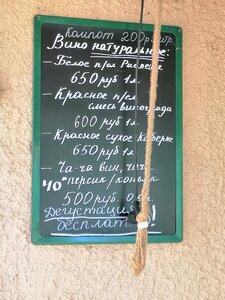 Компот 200р
Вино натуральное:
- Белое п/сл
650 руб 1л.
- Красное п/сл
смесь винограда
600 руб 1л.
- Красное сухое Каберне
650 руб 1л.
- Ча-ча вин,
40° персик/коньяк
500 руб 0,5л.
Дегустация
бесплат